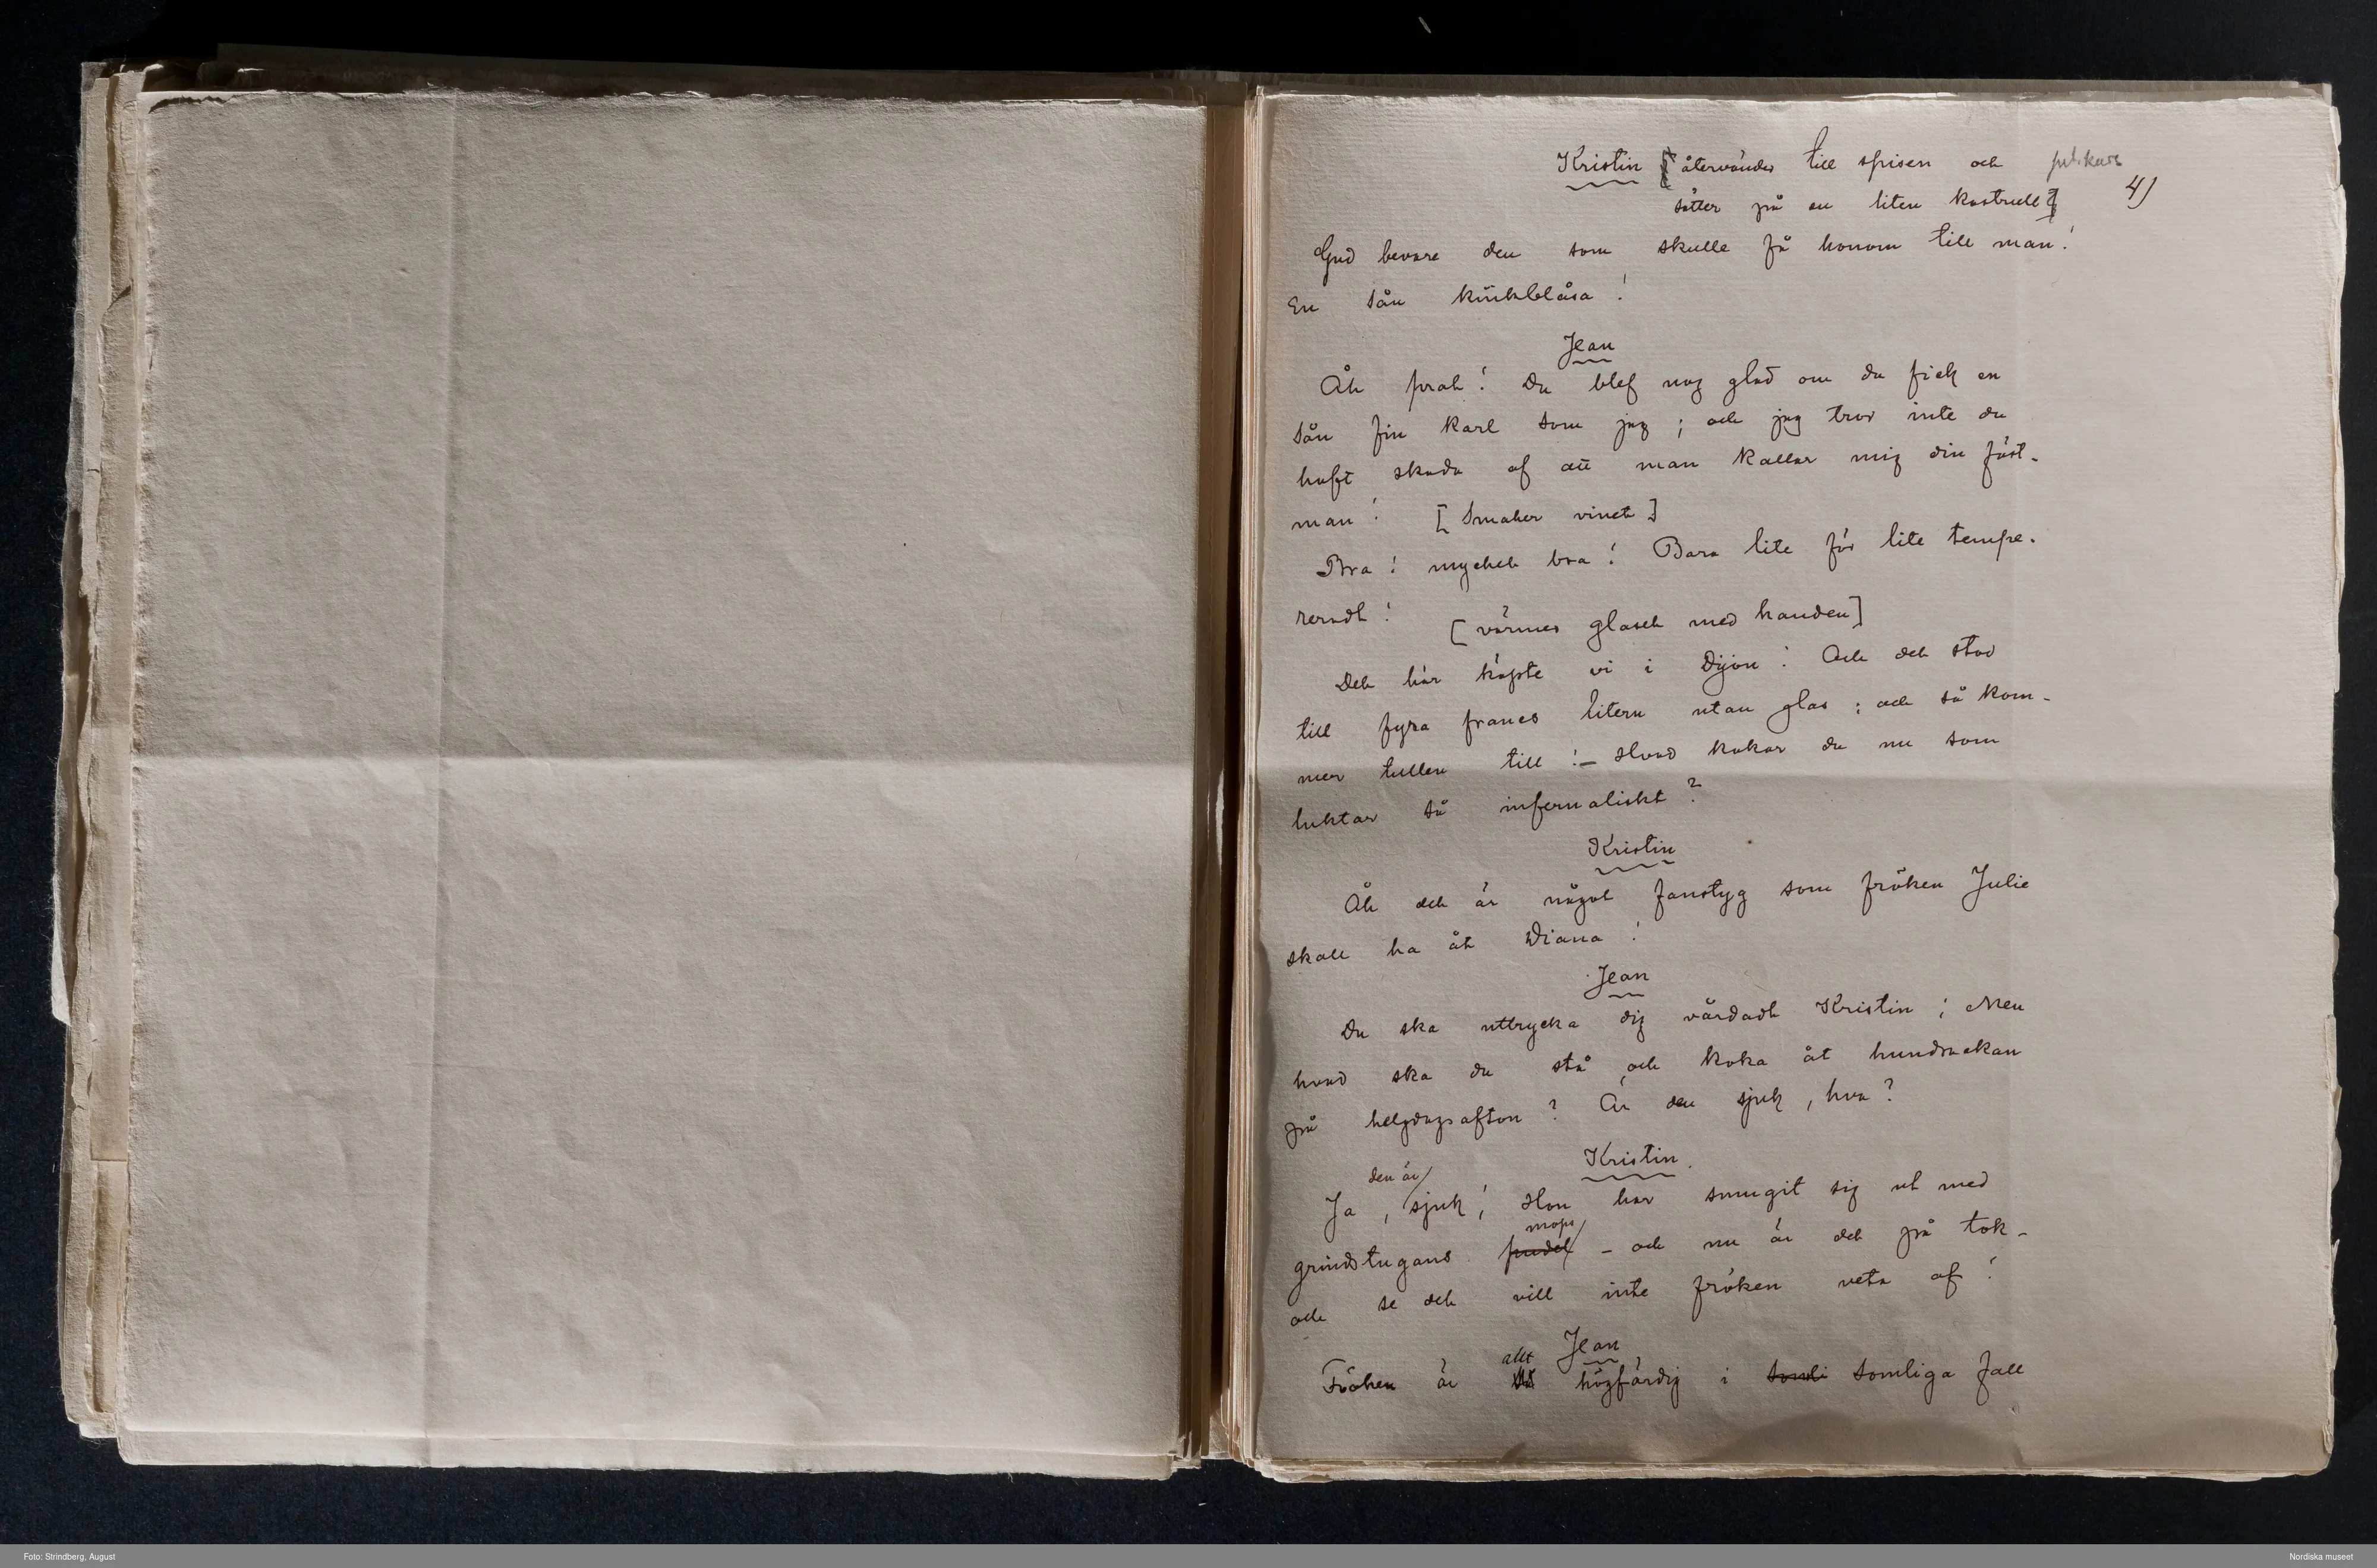 Kristin [återvänder till spisen och
sätter på en liten kastrull] 4)
Gud bevare den som skulle få honom till man!
En sån kinkblåsa!
Jean
Åh prat! Du blef nog glad om du fick en
sån fin karl som jag; och jag tror inte du
haft skada af att man kallar mig din fäst-
man! [Smakar vinet]
Bra! mycket bra! Bara lite för lite tempe-
reradt! [värmer glaset med handen]
Det här köpte vi i Dijon! Och det stod
till fyra francs litern utan glas; och så kom-
mer tullen till!– Hvad kokar du nu som
luktar så infernaliskt?
Kristin
Åh det är något fanstyg som fröken Julie
skall ha åt Diana!
Jean
Du ska uttrycka dig vårdadt Kristin; Men
hvad ska du stå och koka åt hundrackan
på helgdagsafton? Är den sjuk, hva?
Kristin
den är
Ja, sjuk! Hon har smugit sig ut med
mops
grindstugans pudel – och nu är det på tok –
och se det vill inte fröken veta af!
Jean
allt
Fröken är så högfärdig i somli somliga fall
Foto: Strindberg, August
Nordiska museet